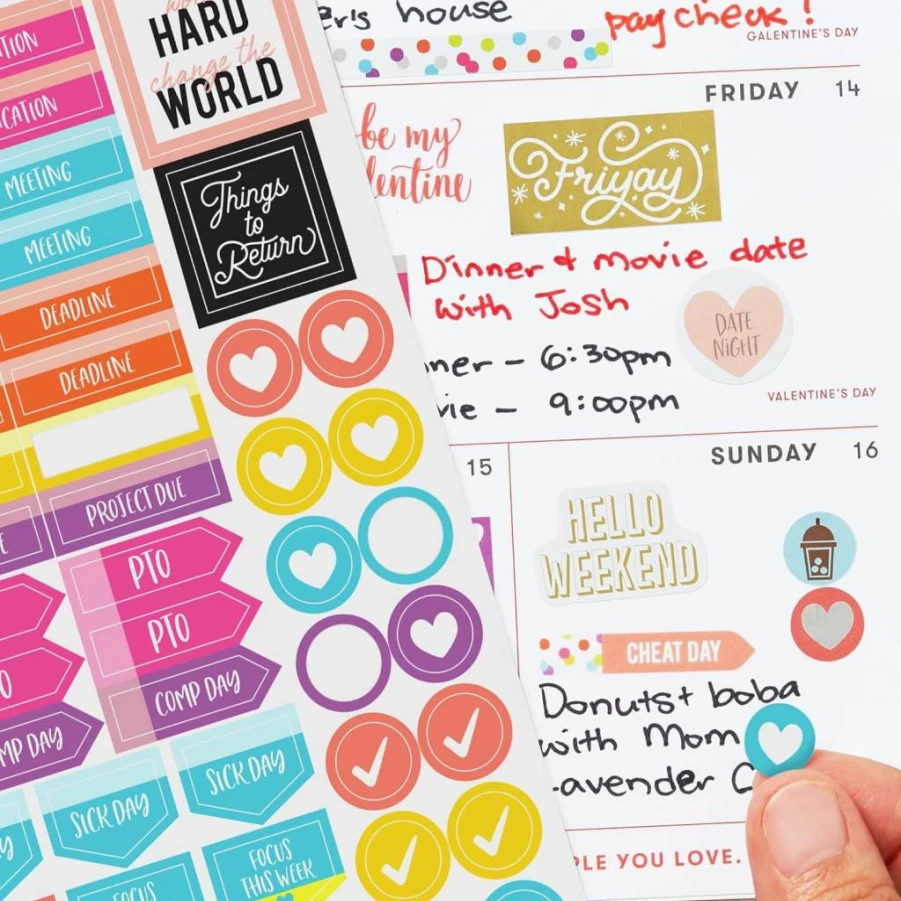 HARD
change the
WORLD
Things
to
Return
MEETING
MEETING
DEADLINE
DEADLINE
PROJECT DUE
PTO
PTO
COMP DAY
SICK DAY
SICK DAY
FOCUS
THIS WEEK
FOCUS
house
paycheck!
GALENTINE'S DAY
FRIDAY 14
be my
Friyay
Dinner & movie date
with Josh
DATE
NIGHT
6:30pm
9:00pm
VALENTINE'S DAY
15
SUNDAY 16
HELLO
WEEKEND
CHEAT DAY
Donuts + boba
with Mom
YOU LOVE.